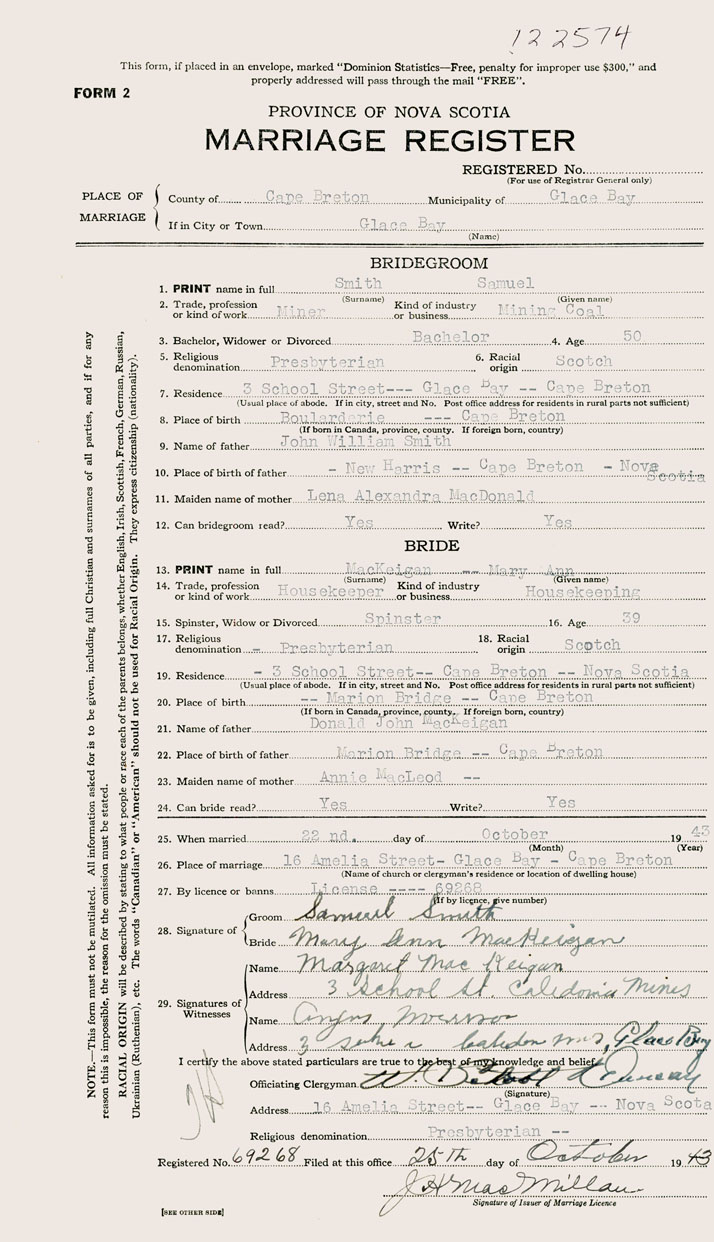 122574
This form, if placed in an envelope, marked "Dominion Statistics—Free, penalty for improper use $300," and
properly addressed will pass through the mail "FREE".
FORM 2
PROVINCE OF NOVA SCOTIA
MARRIAGE REGISTER
REGISTERED No.
(For use of Registrar General only)
PLACE OF MARRIAGE
County of Cape Breton Municipality of Glace Bay
If in City or Town Glace Bay
(Name)
BRIDEGROOM
1. PRINT name in full Smith Samuel
(Surname) (Given name)
2. Trade, profession or kind of work Miner Kind of industry or business Mining Coal
3. Bachelor, Widower or Divorced Bachelor 4. Age 50
5. Religious denomination Presbyterian 6. Racial origin Scotch
7. Residence 3 School Street--- Glace Bay -- Cape Breton
(Usual place of abode. If in city, street and No. Post office address for residents in rural parts not sufficient)
8. Place of birth Boularderie --- Cape Breton
(If born in Canada, province, county. If foreign born, country)
9. Name of father John William Smith
10. Place of birth of father - New Harris -- Cape Breton - Nova Scotia
11. Maiden name of mother Lena Alexandra MacDonald
12. Can bridegroom read? Yes Write? Yes
BRIDE
13. PRINT name in full MacKeigan -- Mary Ann
(Surname) (Given name)
14. Trade, profession or kind of work Housekeeper Kind of industry or business Housekeeping
15. Spinster, Widow or Divorced Spinster 16. Age 39
17. Religious denomination - Presbyterian 18. Racial origin Scotch
19. Residence - 3 School Street-- Cape Breton -- Nova Scotia
(Usual place of abode. If in city, street and No. Post office address for residents in rural parts not sufficient)
20. Place of birth -- Marion Bridge -- Cape Breton
(If born in Canada, province, county. If foreign born, country)
21. Name of father Donald John MacKeigan
22. Place of birth of father Marion Bridge -- Cape Breton
23. Maiden name of mother Annie MacLeod --
24. Can bride read? Yes Write? Yes
25. When married 22 nd. day of October 1943
(Month) (Year)
26. Place of marriage 16 Amelia Street- Glace Bay - Cape Breton
(Name of church or clergyman's residence or location of dwelling house)
27. By licence or banns License ---- 69268
(If by licence, give number)
28. Signature of
Groom Samuel Smith
Bride Mary Ann MacKeigan
29. Signatures of Witnesses
Name Margaret MacKeigan
Address 3 School St. Caledonia Mines
Name Angus
Address 3 Glace Bay
I certify the above stated particulars are true to the best of my knowledge and belief.
Officiating Clergyman W.
(Signature)
Address 16 Amelia Street-- Glace Bay -- Nova Scota
Religious denomination Presbyterian --
Registered No. 69268 Filed at this office 25th day of October 1943
J H MacMillan
Signature of Issuer of Marriage Licence
[SEE OTHER SIDE]
NOTE.—This form must not be mutilated. All information asked for is to be given, including full Christian and surnames of all parties, and if for any
reason this is impossible, the reason for the omission must be stated.
RACIAL ORIGIN will be described by stating to what people or race each of the parents belongs, whether English, Irish, Scottish, French, German, Russian,
Ukrainian (Ruthenian), etc. The words "Canadian" or "American" should not be used for Racial Origin. They express citizenship (nationality).